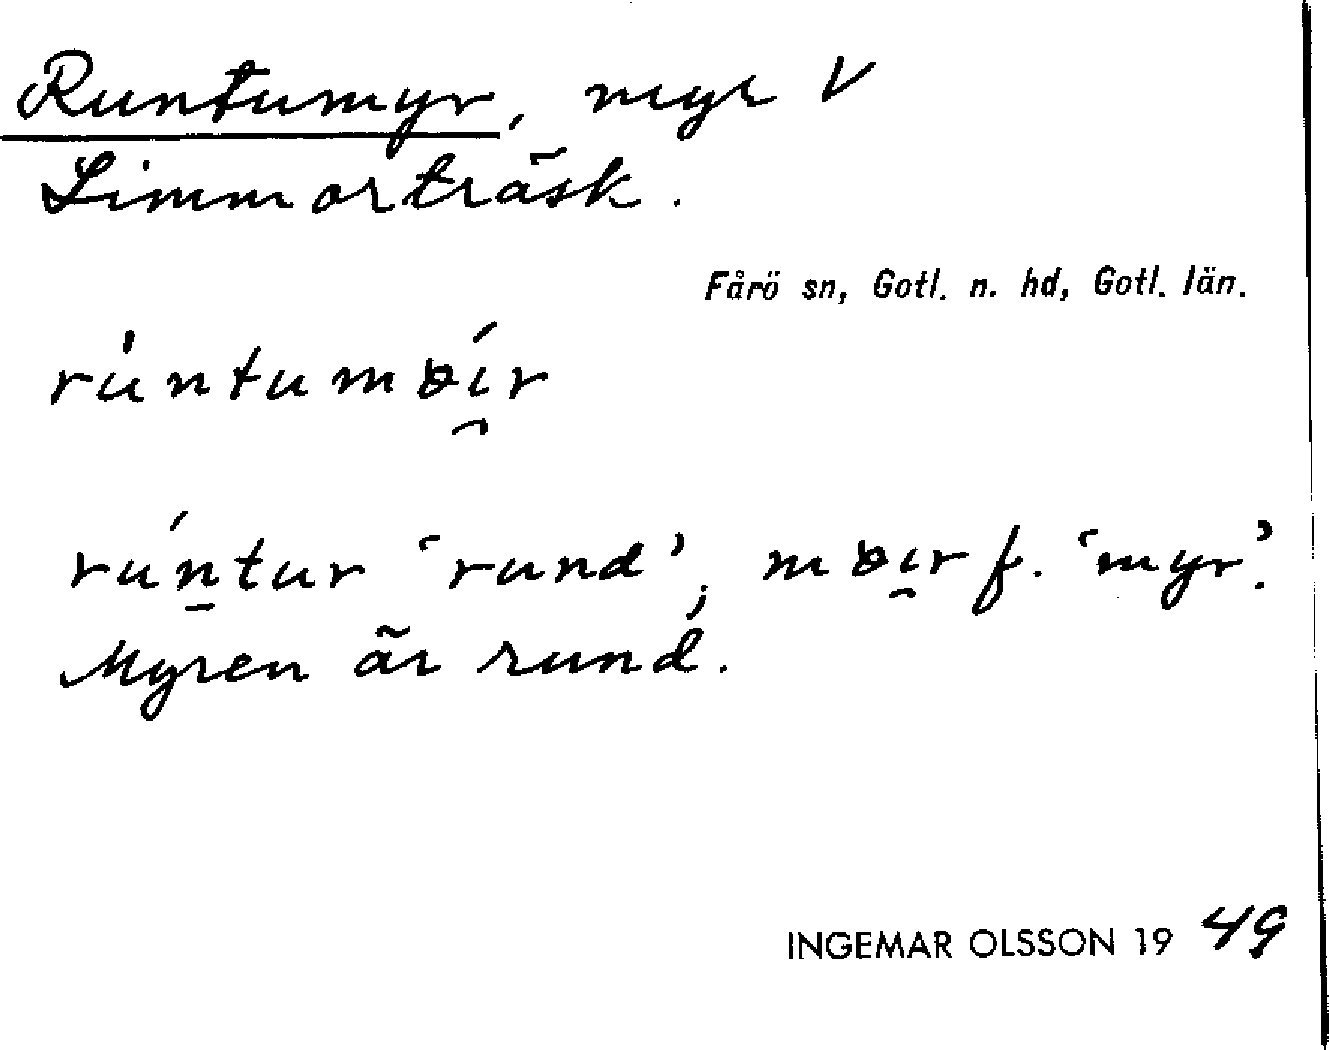 Runtumyr, myr V
Limmorträsk.
Fårö sn, Gotl. n. hd, Gotl. län.
rùntumɒí̯r
rún̠tur ‘rund’; mɒi̯r f. ‘myr’.
Myren är rund.
INGEMAR OLSSON 1949